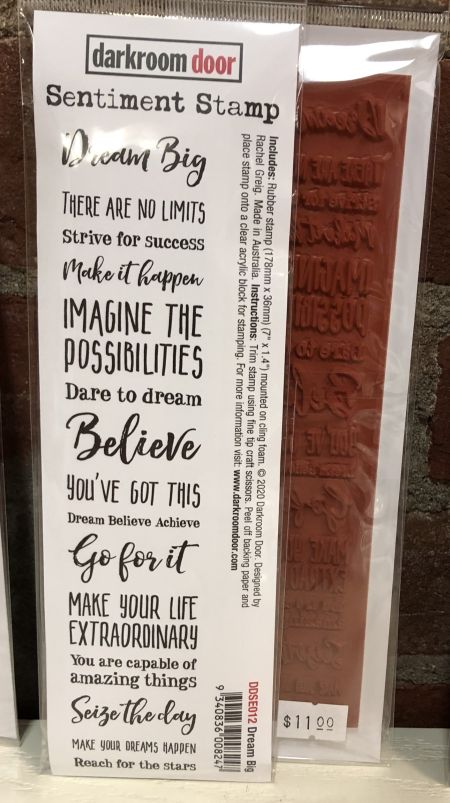 darkroom door
Sentiment Stamp
Dream Big
THERE ARE NO LIMITS
Strive for success
Make it happen
IMAGINE THE
POSSIBILITIES
Dare to dream
Believe
YOU'VE GOT THIS
Dream Believe Achieve
Go for it
MAKE YOUR LIFE
EXTRAORDINARY
You are capable of
amazing things
Seize the day
MAKE YOUR DREAMS HAPPEN
Reach for the stars
Includes: Rubber stamp (178mm x 36mm) (7" x 1.4") mounted on cling foam. © 2020 Darkroom Door. Designed by
Rachel Greig. Made in Australia. Instructions: Trim stamp using fine tip craft scissors. Peel off backing paper and
place stamp onto a clear acrylic block for stamping. For more information visit: www.darkroomdoor.com
DDSE012 Dream Big
9 340836 008247
$11.00